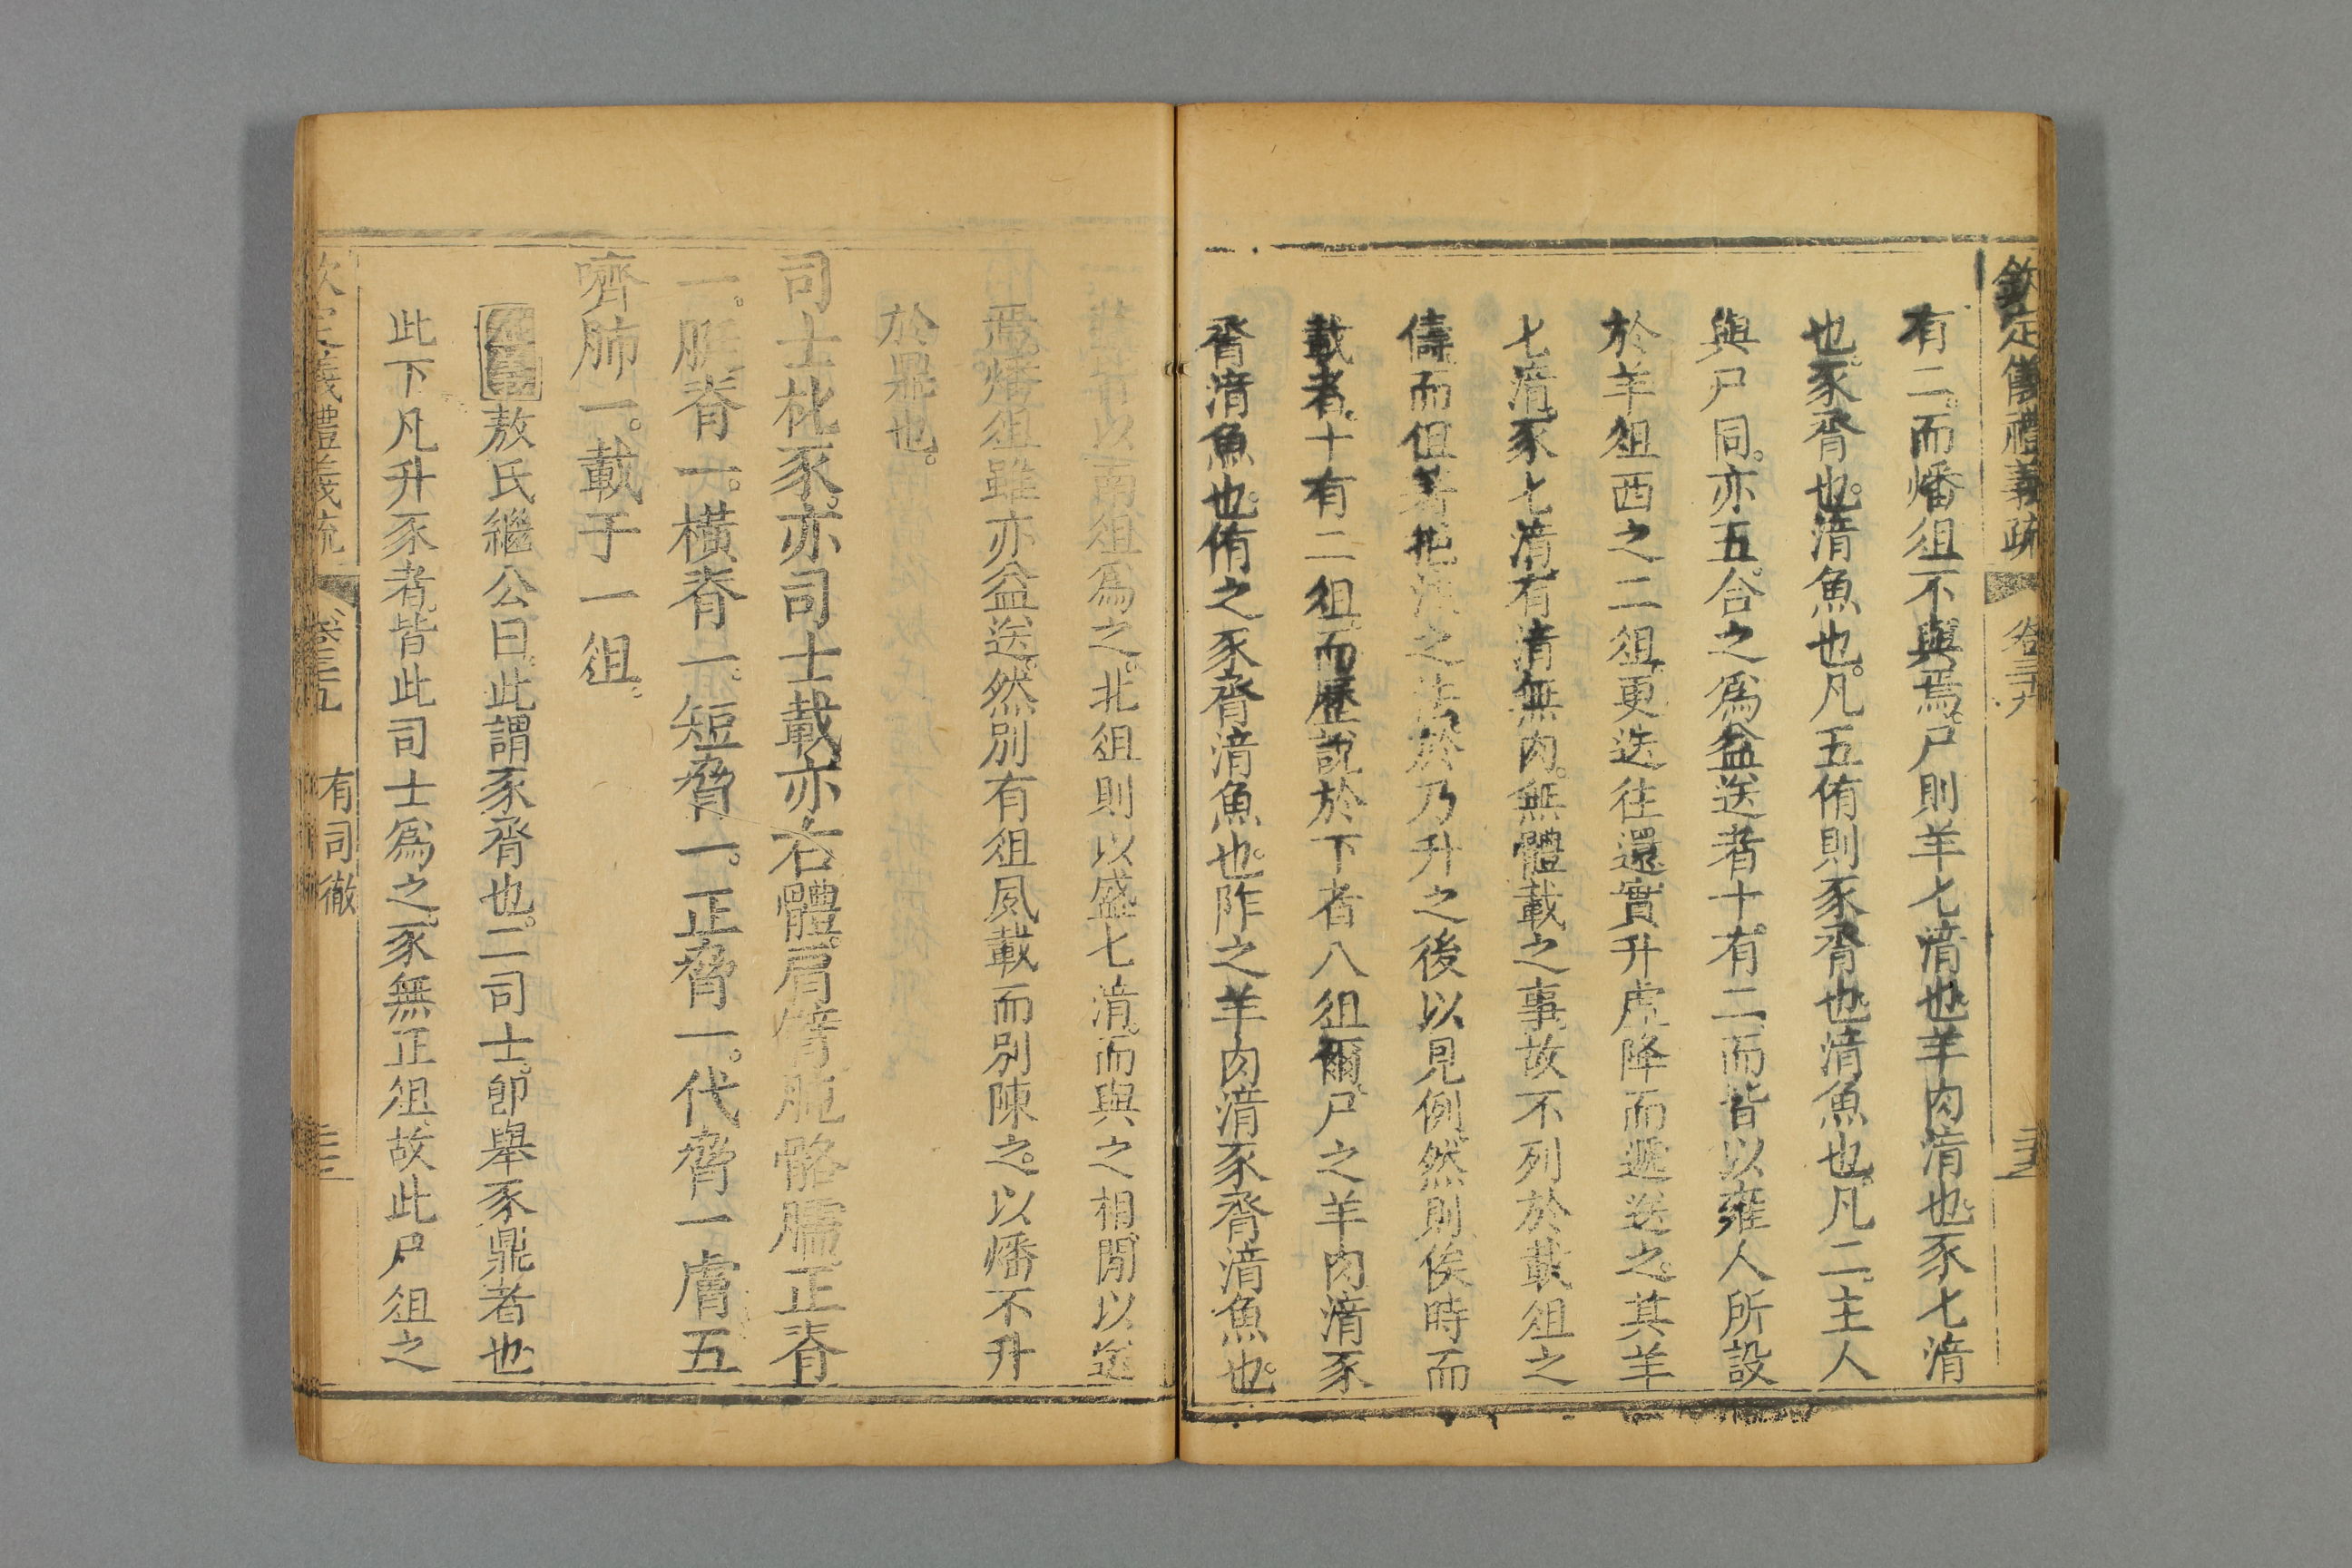 欽定儀禮義疏 卷三十九
有二而燔俎不與焉尸則羊匕湆也羊肉湆也豕匕湆
也豕脀也湆魚也凡五侑則豕脀也湆魚也凡二主人
與尸同亦五合之為益送者十有二而皆以雍人所設
於羊俎西之二俎更迭往還實升虛降而遞送之其羊
匕湆豕匕湆有湆無肉無體載之事故不列於載俎之
儔而但著
於乃升之後以見例然則俟時而
載者十有二俎而歷說於下者八俎爾尸之羊肉湆豕
脀湆魚也侑之豕脀湆魚也阼之羊肉湆豕脀湆魚也
以南俎為之北俎則以盛匕湆而與之相閒以送
焉燔俎雖亦益送然別有俎夙載而別陳之以燔不升
於鼎也
司士朼豕亦司士載亦右體肩臂肫骼臑正脊
一脡脊一橫脊一短脅一正脅一代脅一膚五
嚌肺一載于一俎
敖氏繼公曰此謂豕脀也二司士卽舉豕鼎者也
此下凡升豕者皆此司士為之豕無正俎故此尸俎之
欽定儀禮義疏 卷三十九 有司徹